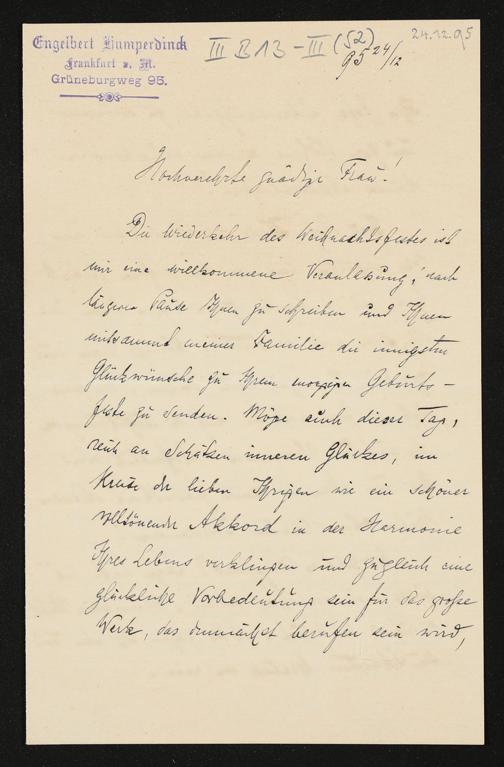 Engelbert Humperdinck
Frankfurt a. M.
Grüneburgweg 95.
III B 13 - III (52)
24.12.95
95 24/12
Hochverehrte gnädige Frau!
Die Wiederkehr des Weihnachtsfestes ist
mir eine willkommene Veranlassung, nach
längerer Pause Ihnen zu schreiben und Ihnen
mitsammt meiner Familie die innigsten
Glückwünsche zu Ihrem morgigen Geburts-
feste zu senden. Möge auch dieser Tag,
reich an Schätzen inneren Glückes, im
Kreise der lieben Ihrigen wie ein schöner
volltönender Akkord in der Harmonie
Ihres Lebens verklingen und zugleich eine
glückliche Vorbedeutung sein für das große
Werk, das demnächst berufen sein wird,